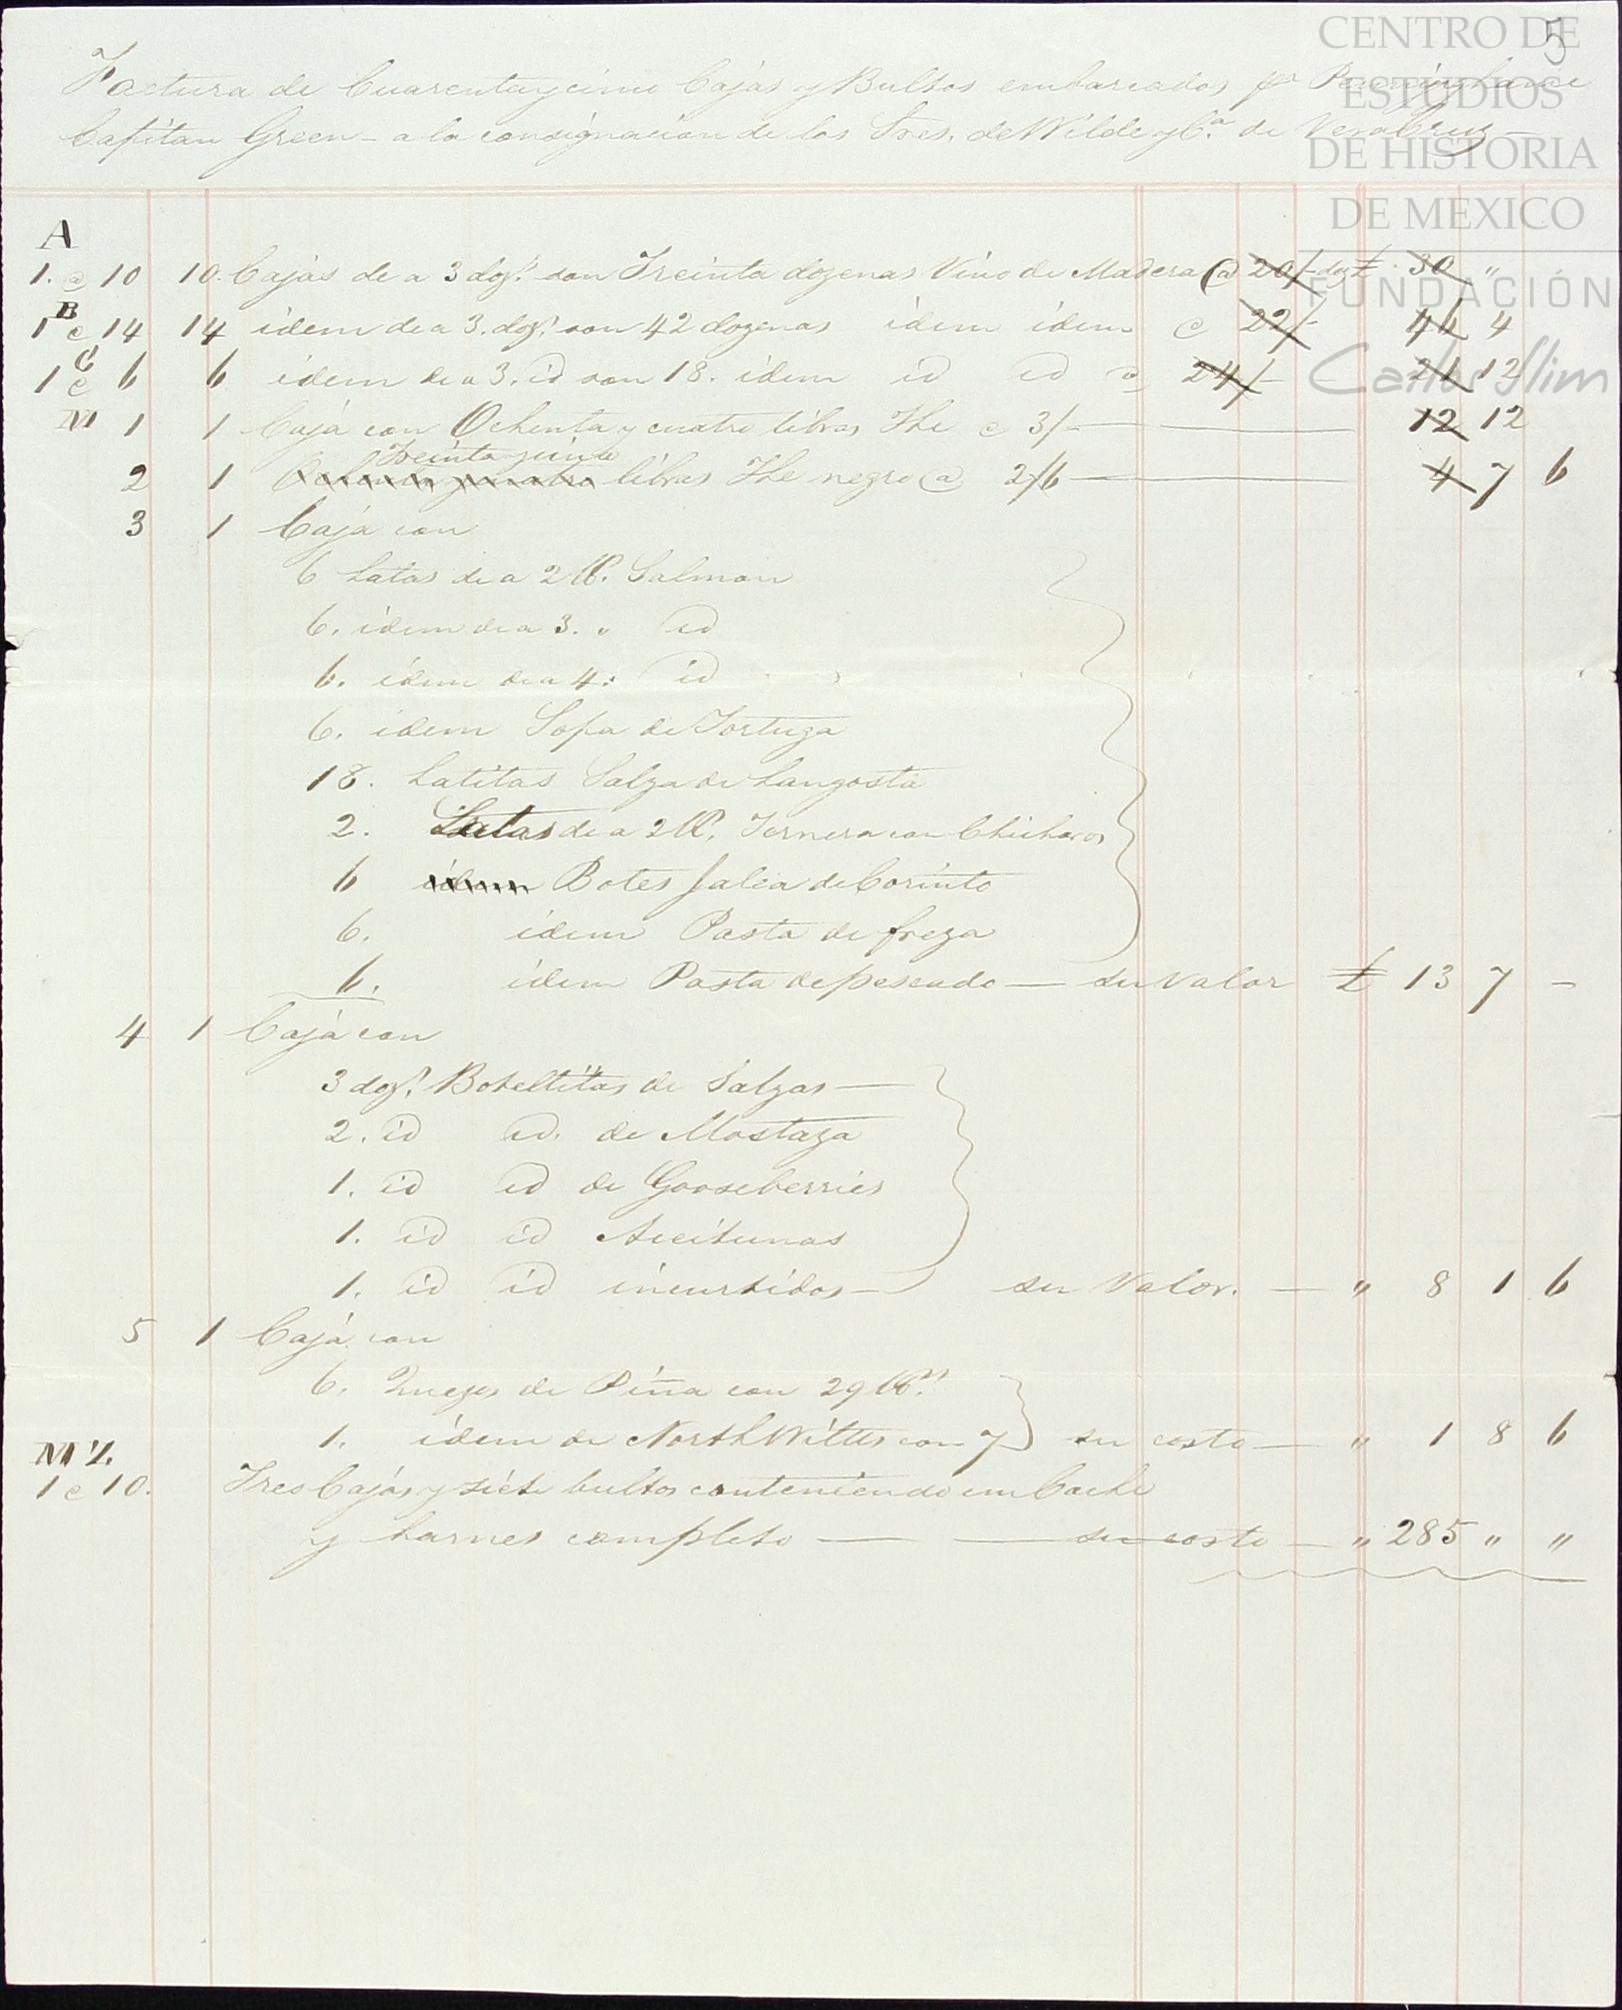 5
CENTRO DE
ESTUDIOS
DE HISTORIA
DE MEXICO
FUNDACIÓN
Carlos Slim
Factura de Cuarentaycinco Cajas y Bultos embarcados pr
Capitan Green - a la consignacion de los Sres. de Wilde y Ca. de VeraCruz -
A
1. @ 10 10. Cajas de a 3 dozs. son Treinta dozenas Vino de Madera @ 20/- doz £ 30 "
B
1 @ 14 14 idem de a 3. dozs. son 42 dozenas idem idem @ 22/- 46 4
C
1 @ 6 6 idem de a 3. id son 18. idem id id @ 24/- 21 12
M 1 1 Caja con Ochenta y cuatro libras The @ 3/- 12 12
Treinta y cinco
2 1 Ochenta y cuatro libras The negro @ 2/6 4 7 6
3 1 Caja con
6 Latas de a 2 lb. Salmon
6. idem de a 3. " id
6. idem de a 4: id
6. idem Sopa de Tortuga
18. Latitas Salza de Langosta
2. Latas de a 2 lb. Ternera con Chicharos
6 idem Botes Jalea de Corinto
6. idem Pasta de freza
6. idem Pasta de pescado — su Valor £ 13 7 -
4 1 Caja con
3 dozs. Botellitas de Salzas —
2. id id. de Mostaza
1. id id de Gooseberries
1. id id Aceitunas
1. id id incurtidos — su Valor. — " 8 1 6
5 1 Caja con
6. Quezos de Piña con 29 lbs.
1. idem de North Wilts con 7 su costo — " 1 8 6
M Z.
1 @ 10. Tres Cajas y siete bultos conteniendo un Coche
y harnes completo — su costo — " 285 " "